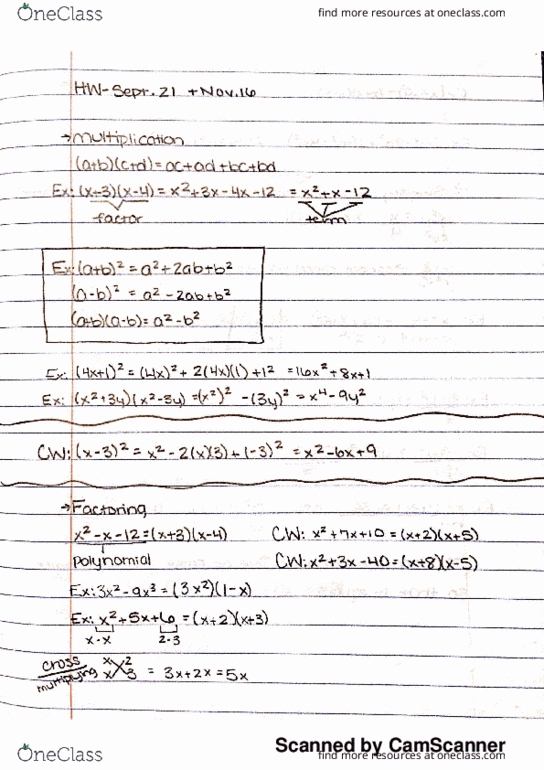 OneClass
find more resources at oneclass.com
HW-Sept. 21 + Nov. 16
→Multiplication
(a+b)(c+d)=ac+ad+bc+bd
Ex: (x+3)(x-4)=x²+3x-4x-12 = x²+x-12
factor term
Ex: (a+b)² = a²+2ab+b²
(a-b)² = a²-2ab+b²
(a+b)(a-b)= a²-b²
Ex: (4x+1)² = (4x)² + 2(4x)(1) + 1² = 16x² + 8x+1
Ex: (x²+3y)(x²-3y)=(x²)² - (3y)² = x⁴-9y²
CW: (x-3)² = x²-2(x)(3)+(-3)² = x²-6x+9
→Factoring
x²-x-12=(x+3)(x-4) CW: x²+7x+10=(x+2)(x+5)
polynomial CW: x²+3x-40=(x+8)(x-5)
Ex: 3x²-9x³=(3x²)(1-x)
Ex: x²+5x+6=(x+2)(x+3)
x·x 2·3
cross x 2
multiplying x 3 = 3x+2x=5x
Scanned by CamScanner
OneClass
find more resources at oneclass.com